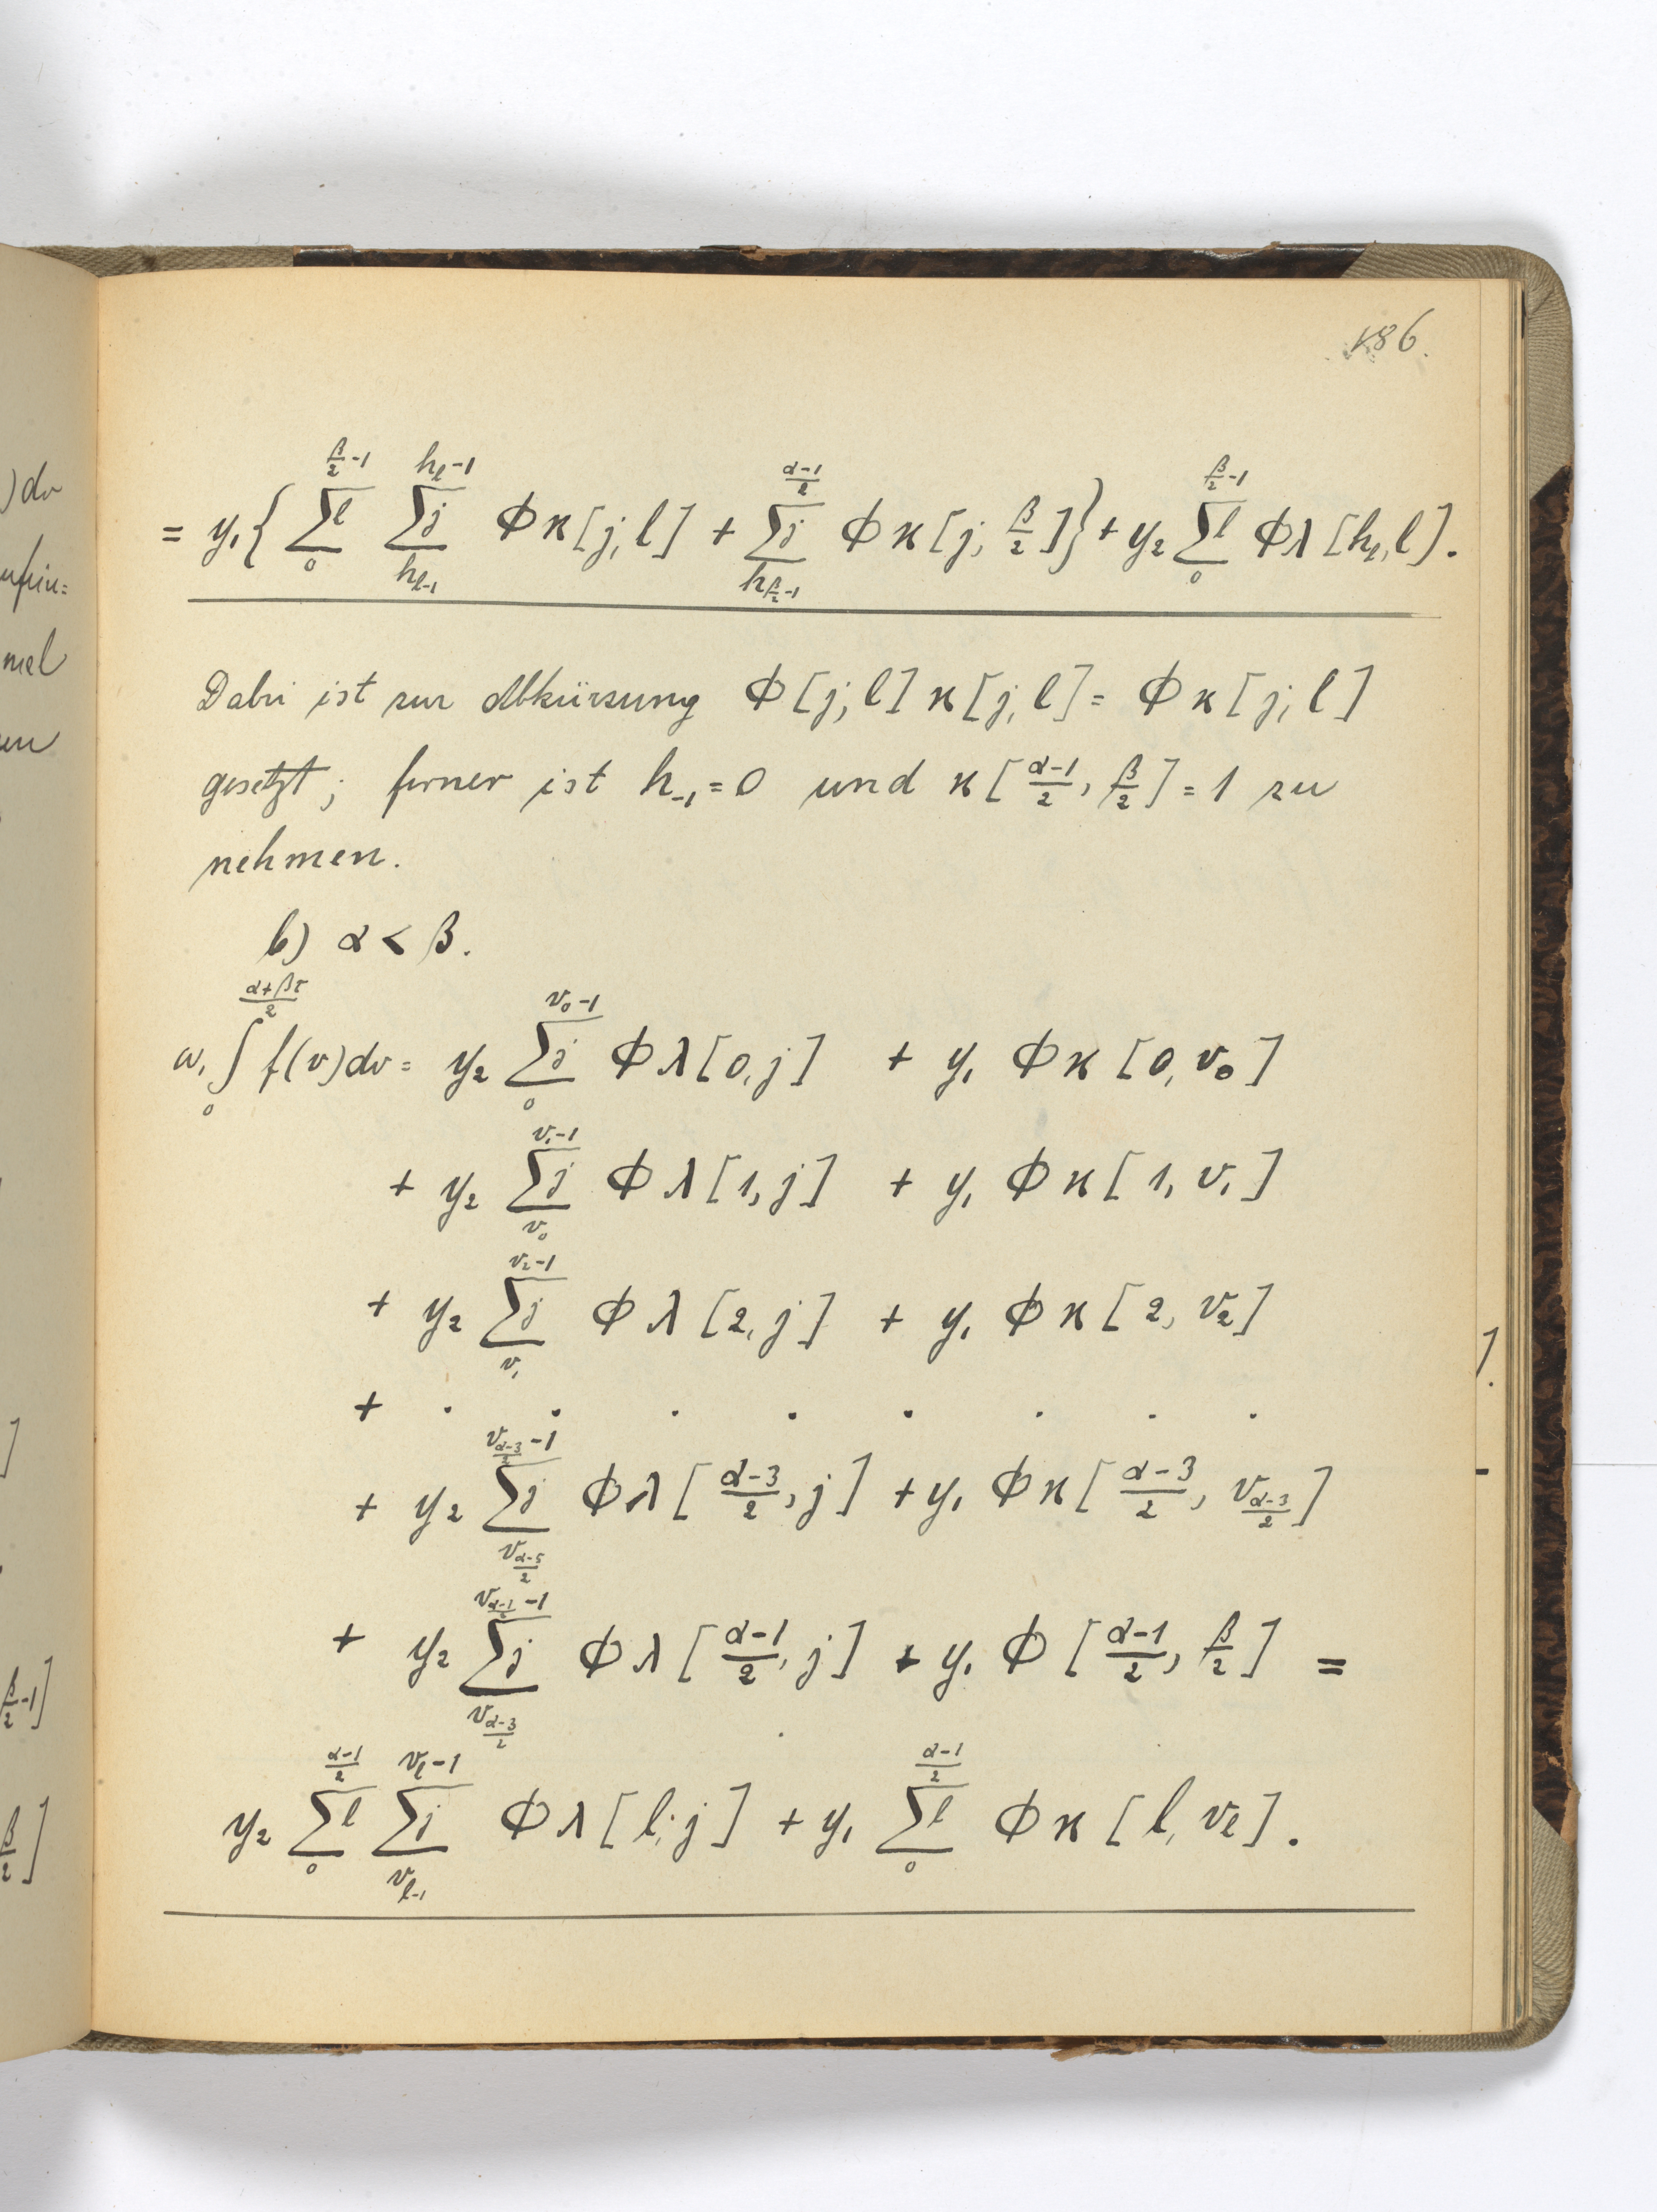 186.
= y₁{ \sum_{0}^{\frac{β}{2}-1} l \sum_{h_{l-1}}^{h_l-1} j Φκ[j, l] + \sum_{h_{\frac{β}{2}-1}}^{\frac{α-1}{2}} j Φκ[j, \frac{β}{2}] } + y₂ \sum_{0}^{\frac{β}{2}-1} l Φλ[h_l, l].
Dabei ist zur Abkürzung Φ[j, l] κ[j, l] = Φκ[j, l]
gesetzt; ferner ist h_{-1} = 0 und κ[\frac{α-1}{2}, \frac{β}{2}] = 1 zu
nehmen.
b) α < β.
ω₁ \int_{0}^{\frac{α+βτ}{2}} f(v)dv = y₂ \sum_{0}^{v_0-1} j Φλ[0, j] + y₁ Φκ[0, v₀]
+ y₂ \sum_{v_0}^{v_1-1} j Φλ[1, j] + y₁ Φκ[1, v₁]
+ y₂ \sum_{v_1}^{v_2-1} j Φλ[2, j] + y₁ Φκ[2, v₂]
+ . . . . . . . .
+ y₂ \sum_{v_{\frac{α-5}{2}}}^{v_{\frac{α-3}{2}}-1} j Φλ[\frac{α-3}{2}, j] + y₁ Φκ[\frac{α-3}{2}, v_{\frac{α-3}{2}}]
+ y₂ \sum_{v_{\frac{α-3}{2}}}^{v_{\frac{α-1}{2}}-1} j Φλ[\frac{α-1}{2}, j] + y₁ Φ[\frac{α-1}{2}, \frac{β}{2}] =
y₂ \sum_{0}^{\frac{α-1}{2}} l \sum_{v_{l-1}}^{v_l-1} j Φλ[l, j] + y₁ \sum_{0}^{\frac{α-1}{2}} l Φκ[l, v_l].